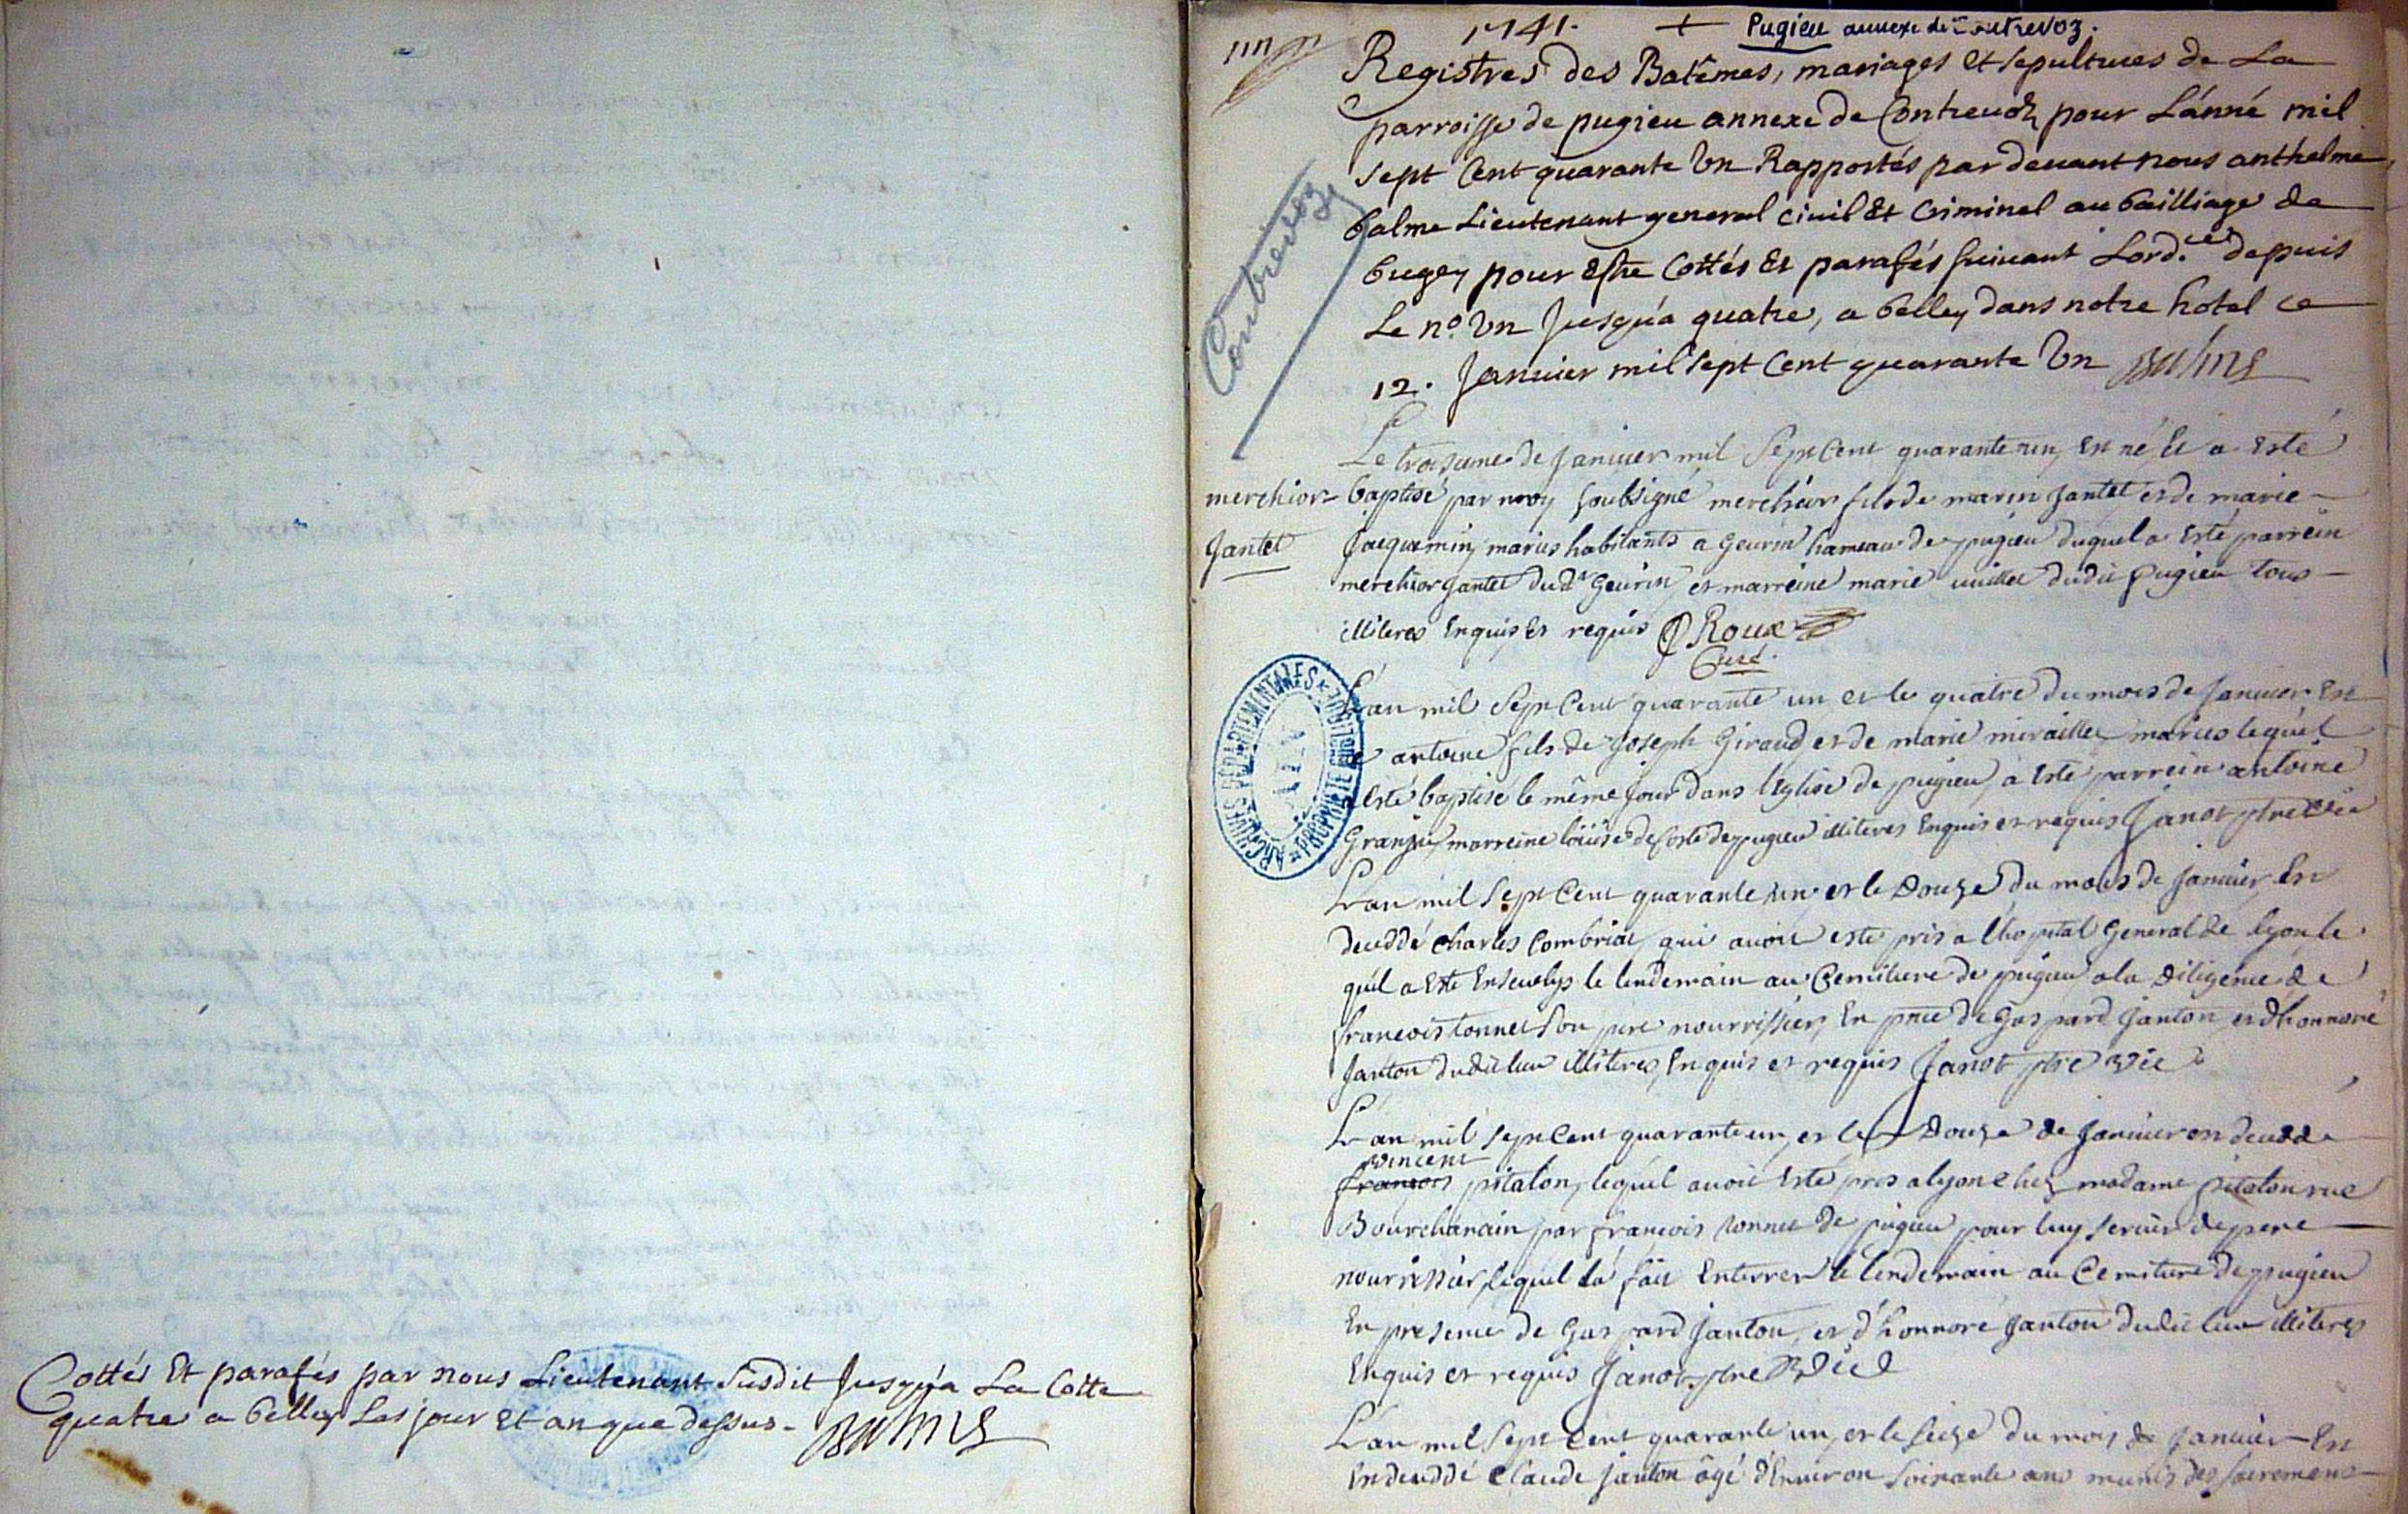 Cottés Et parafés par nous Lieutenant susdit Jusqu'a La Cotte
quatre a belley Les jour Et an que dessus - Balme
1741. + Pugieu annexe de Contrevoz.
Registres des Batêmes, mariages et sepultures de La
parroisse de pugieu annexe de Contrevoz pour L'anné mil
sept Cent quarante Un Rapportés par devant nous anthelme
balme Lieutenant general civil Et Criminel au bailliage de
bugey pour Estre Cottés Et parafés suivant Lord.ce depuis
Le n.o Un Jusqu'a quatre, a belley dans notre hotel ce
12. Janvier mil sept Cent quarante Un Balme
Contrevoz
Le troisieme de Janvier mil Sept Cent quarante un, Est né, Et a Esté
merchior
Jantet
baptisé par moy soubsigné merchior fils de marin Jantet et de marie
Jacquemin, mariés habitants a Geurin hameau de pugieu duquel a Esté parrein
merchior Jantet dud.t Geurin et marreine marie dudit Pugieu tous
illiteres Enquis Et requis Roux
Curé.
L'an mil Sept Cent quarante un et le quatre du mois de Janvier Est
né antoine fils de Joseph Giraud et de marie miraillet mariés lequel
a Esté baptisé le même jour dans l'Eglise de pugieu, a Esté parrein antoine
marreine loüise de pugieu illiteres Enquis et requis Janot ptre vic
L'an mil Sept Cent quarante un et le Douze du mois de Janvier Est
deceddé Charles Combriat, qui avoit esté pris a l'hopital General de lyon le
quel a Esté Ensevelys le lendemain au Cemitiere de pugieu a la Diligence de
francois tonnet son pere nourrissier, En pnce de Gaspard Janton et d'honnoré
Janton dudit lieu illiteres, Enquis et requis Janot ptre vic
L'an mil Sept Cent quarante un, et le Douze de Janvier est deceddé
vincent
francois pitalon, lequel avoit Esté pris a lyon chez madame pitalon rue
Bourchanain par francois tonnet de pugieu pour luy servir de pere
nourrissier, lequel l'a fait Enterrer le lendemain au Cemitiere de pugieu
En presence de Gaspard Janton, et d'honnoré Janton dudit lieu illiteres
Enquis et requis Janot ptre Vic
L'an mil Sept Cent quarante un, et le seize du mois de Janvier Est
En deceddé Claude Janton âgé d'Environ soixante ans munis des sacremens
ARCHIVES DÉPARTEMENTALES
PROPRIÉTÉ PUBLIQUE
AIN